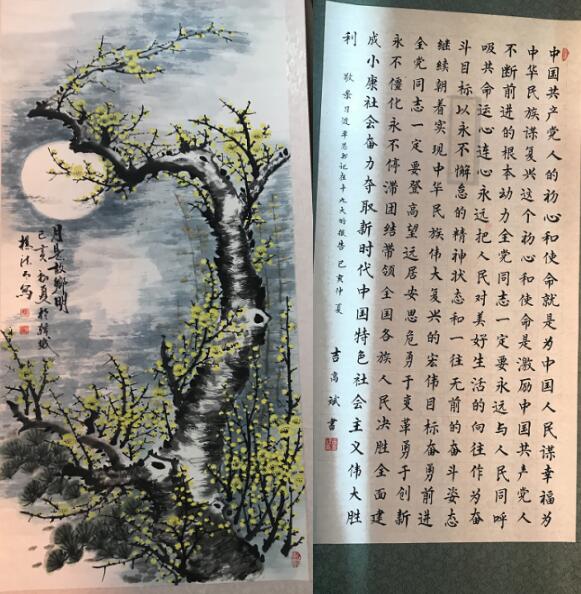 月是故鄉明
己亥初夏於
写
中国共产党人的初心和使命就是为中国人民谋幸福为
中华民族谋复兴这个初心和使命是激励中国共产党人
不断前进的根本动力全党同志一定要永远与人民同呼
吸共命运心连心永远把人民对美好生活的向往作为奋
斗目标以永不懈怠的精神状态和一往无前的奋斗姿态
继续朝着实现中华民族伟大复兴的宏伟目标奋勇前进
全党同志一定要登高望远居安思危勇于变革勇于创新
永不僵化永不停滞团结带领全国各族人民决胜全面建
成小康社会奋力夺取新时代中国特色社会主义伟大胜
利
敬录习近平总书记在十九大的报告 己亥仲夏
吉高斌书